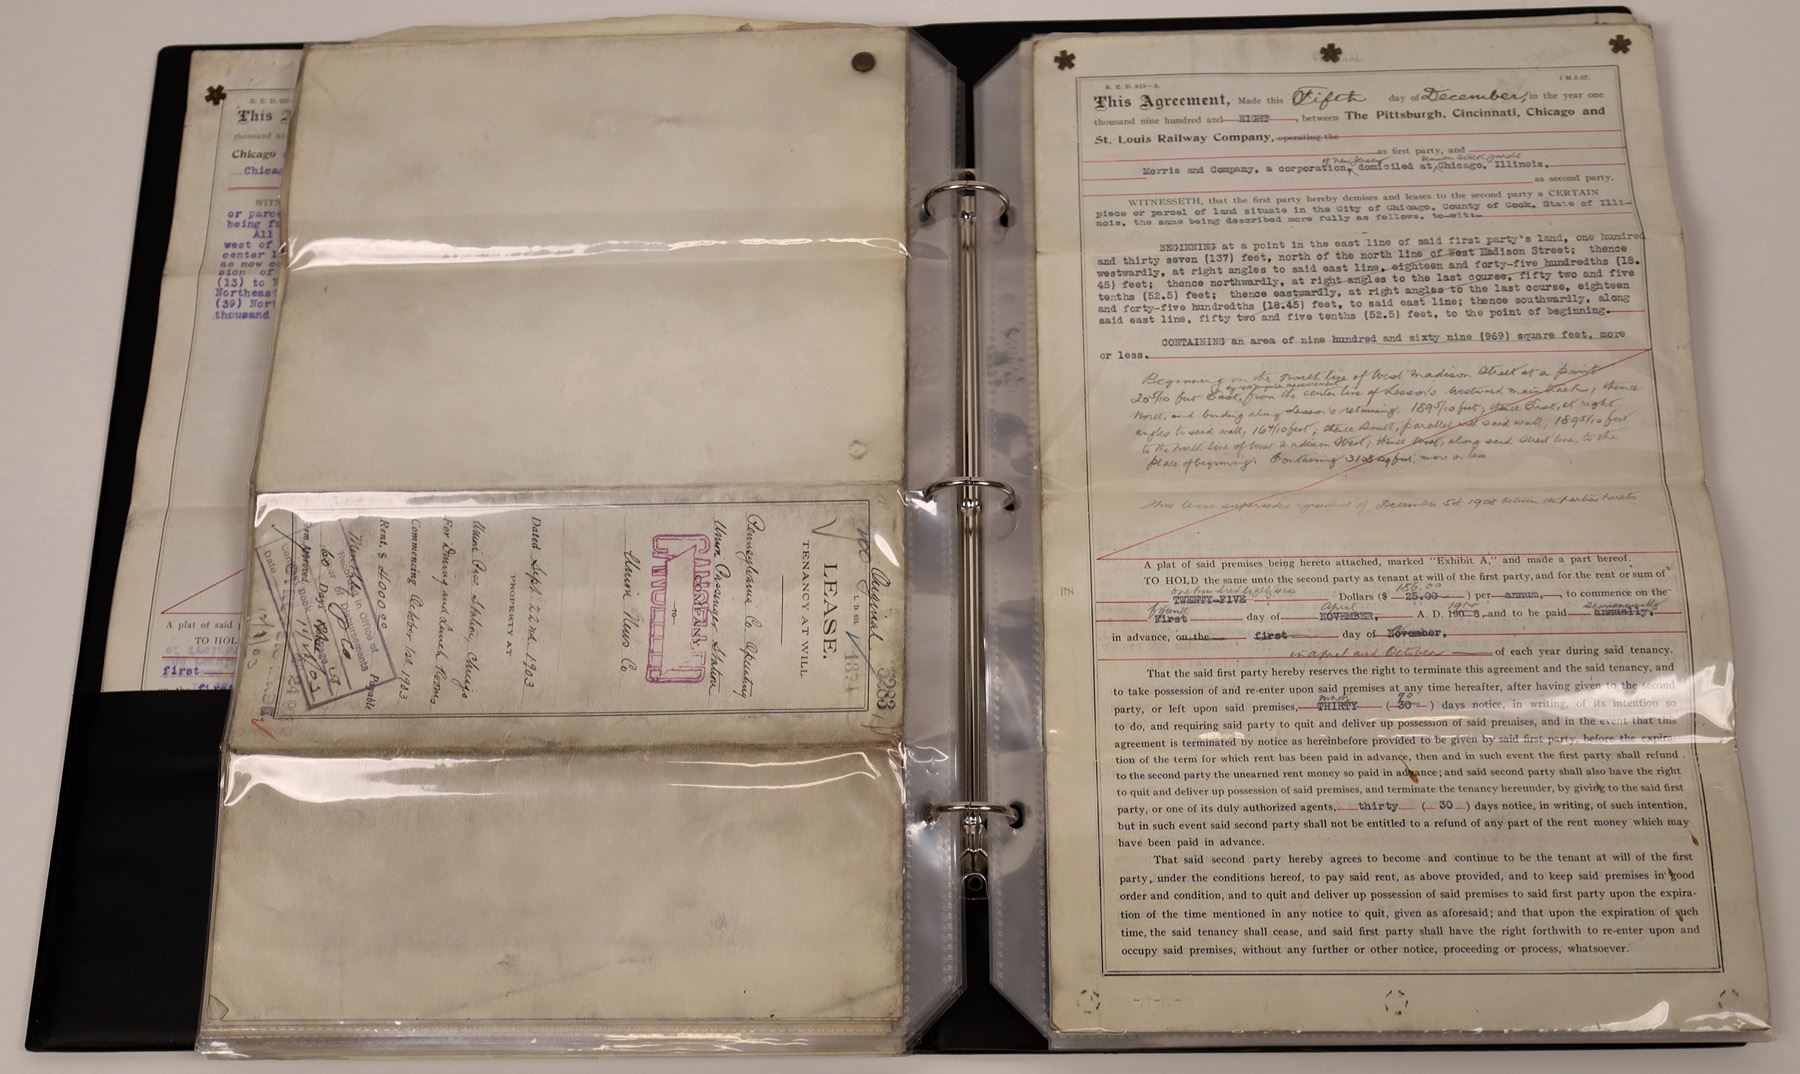 This
thousand
Chicago
WITN
or parce
being fu
All
west of
center l
as now co
sion of
(13) to N
Northeast
(39) Nort
thousand
A plat of said
TO HOL
first
Original
LEASE.
TENANCY AT WILL
Pennsylvania Co. Operating
Union Passenger Station
COMPANY.
—TO—
CANCELLED
Union News Co
PROPERTY AT
Dated Sept. 22nd 1903
Union Pass Station, Chicago
For Dining and Lunch Rooms
Commencing October 1st, 1903
Rent, $ 4000.00
Monthly
Payable
60 Days
Received in Office of
of Disbursements
5283
1374
R. E. D. 813—A.
This Agreement, Made this Fifth day of December, in the year one
thousand nine hundred and EIGHT, between The Pittsburgh, Cincinnati, Chicago and
St. Louis Railway Company, operating the
as first party, and
of New Jersey Union Stock Yards
Morris and Company, a corporation, domiciled at Chicago, Illinois,
as second party,
WITNESSETH, that the first party hereby demises and leases to the second party a CERTAIN
piece or parcel of land situate in the City of Chicago, County of Cook, State of Illi-
nois, the same being described more fully as follows, to-wit:-
BEGINNING at a point in the east line of said first party's land, one hundred
and thirty seven (137) feet, north of the north line of West Madison Street; thence
westwardly, at right angles to said east line, eighteen and forty-five hundredths (18.
45) feet; thence northwardly, at right angles to the last course, fifty two and five
tenths (52.5) feet; thence eastwardly, at right angles to the last course, eighteen
and forty-five hundredths (18.45) feet, to said east line; thence southwardly, along
said east line, fifty two and five tenths (52.5) feet, to the point of beginning.
CONTAINING an area of nine hundred and sixty nine (969) square feet, more
or less.
Beginning on the North line of West Madison Street at a point
20 5/10 feet East, from the center line of Lessor's westward main track; thence
North, and binding along Lessor's retaining 189 5/10 feet; thence East, at right
angles to said wall, 16 4/10 feet; thence South, parallel with said wall, 189 5/10 feet
to the North line of West Madison Street; thence West, along said Street line, to the
place of beginning. Containing 3108 sq feet, more or less
This lease supersedes agreement of December 5th 1908 between the parties hereto
A plat of said premises being hereto attached, marked "Exhibit A," and made a part hereof.
TO HOLD the same unto the second party as tenant at will of the first party, and for the rent or sum of
one hundred eighty six 186.00
TWENTY-FIVE Dollars ($ 25.00 ) per annum, to commence on the
April semiannually
First day of NOVEMBER, A. D. 190 8, and to be paid annually,
in advance, on the first day of November,
in April and October of each year during said tenancy.
That the said first party hereby reserves the right to terminate this agreement and the said tenancy, and
to take possession of and re-enter upon said premises at any time hereafter, after having given to the second
ninety 90
party, or left upon said premises, THIRTY ( 30 ) days notice, in writing, of its intention so
to do, and requiring said party to quit and deliver up possession of said premises, and in the event that this
agreement is terminated by notice as hereinbefore provided to be given by said first party, before the expira-
tion of the term for which rent has been paid in advance, then and in such event the first party shall refund
to the second party the unearned rent money so paid in advance; and said second party shall also have the right
to quit and deliver up possession of said premises, and terminate the tenancy hereunder, by giving to the said first
party, or one of its duly authorized agents, thirty ( 30 ) days notice, in writing, of such intention,
but in such event said second party shall not be entitled to a refund of any part of the rent money which may
have been paid in advance.
That said second party hereby agrees to become and continue to be the tenant at will of the first
party, under the conditions hereof, to pay said rent, as above provided, and to keep said premises in good
order and condition, and to quit and deliver up possession of said premises to said first party upon the expira-
tion of the time mentioned in any notice to quit, given as aforesaid; and that upon the expiration of such
time, the said tenancy shall cease, and said first party shall have the right forthwith to re-enter upon and
occupy said premises, without any further or other notice, proceeding or process, whatsoever.